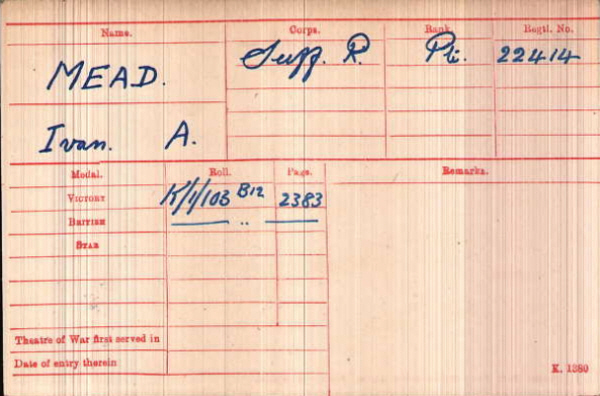 Name. Corps. Rank. Regtl. No.
MEAD. Suff. R. Pte. 22414
Ivan. A.
Medal. Roll. Page. Remarks.
VICTORY K/1/103 B12 2383
BRITISH —— „ ——
STAR
Theatre of War first served in
Date of entry therein
K. 1380